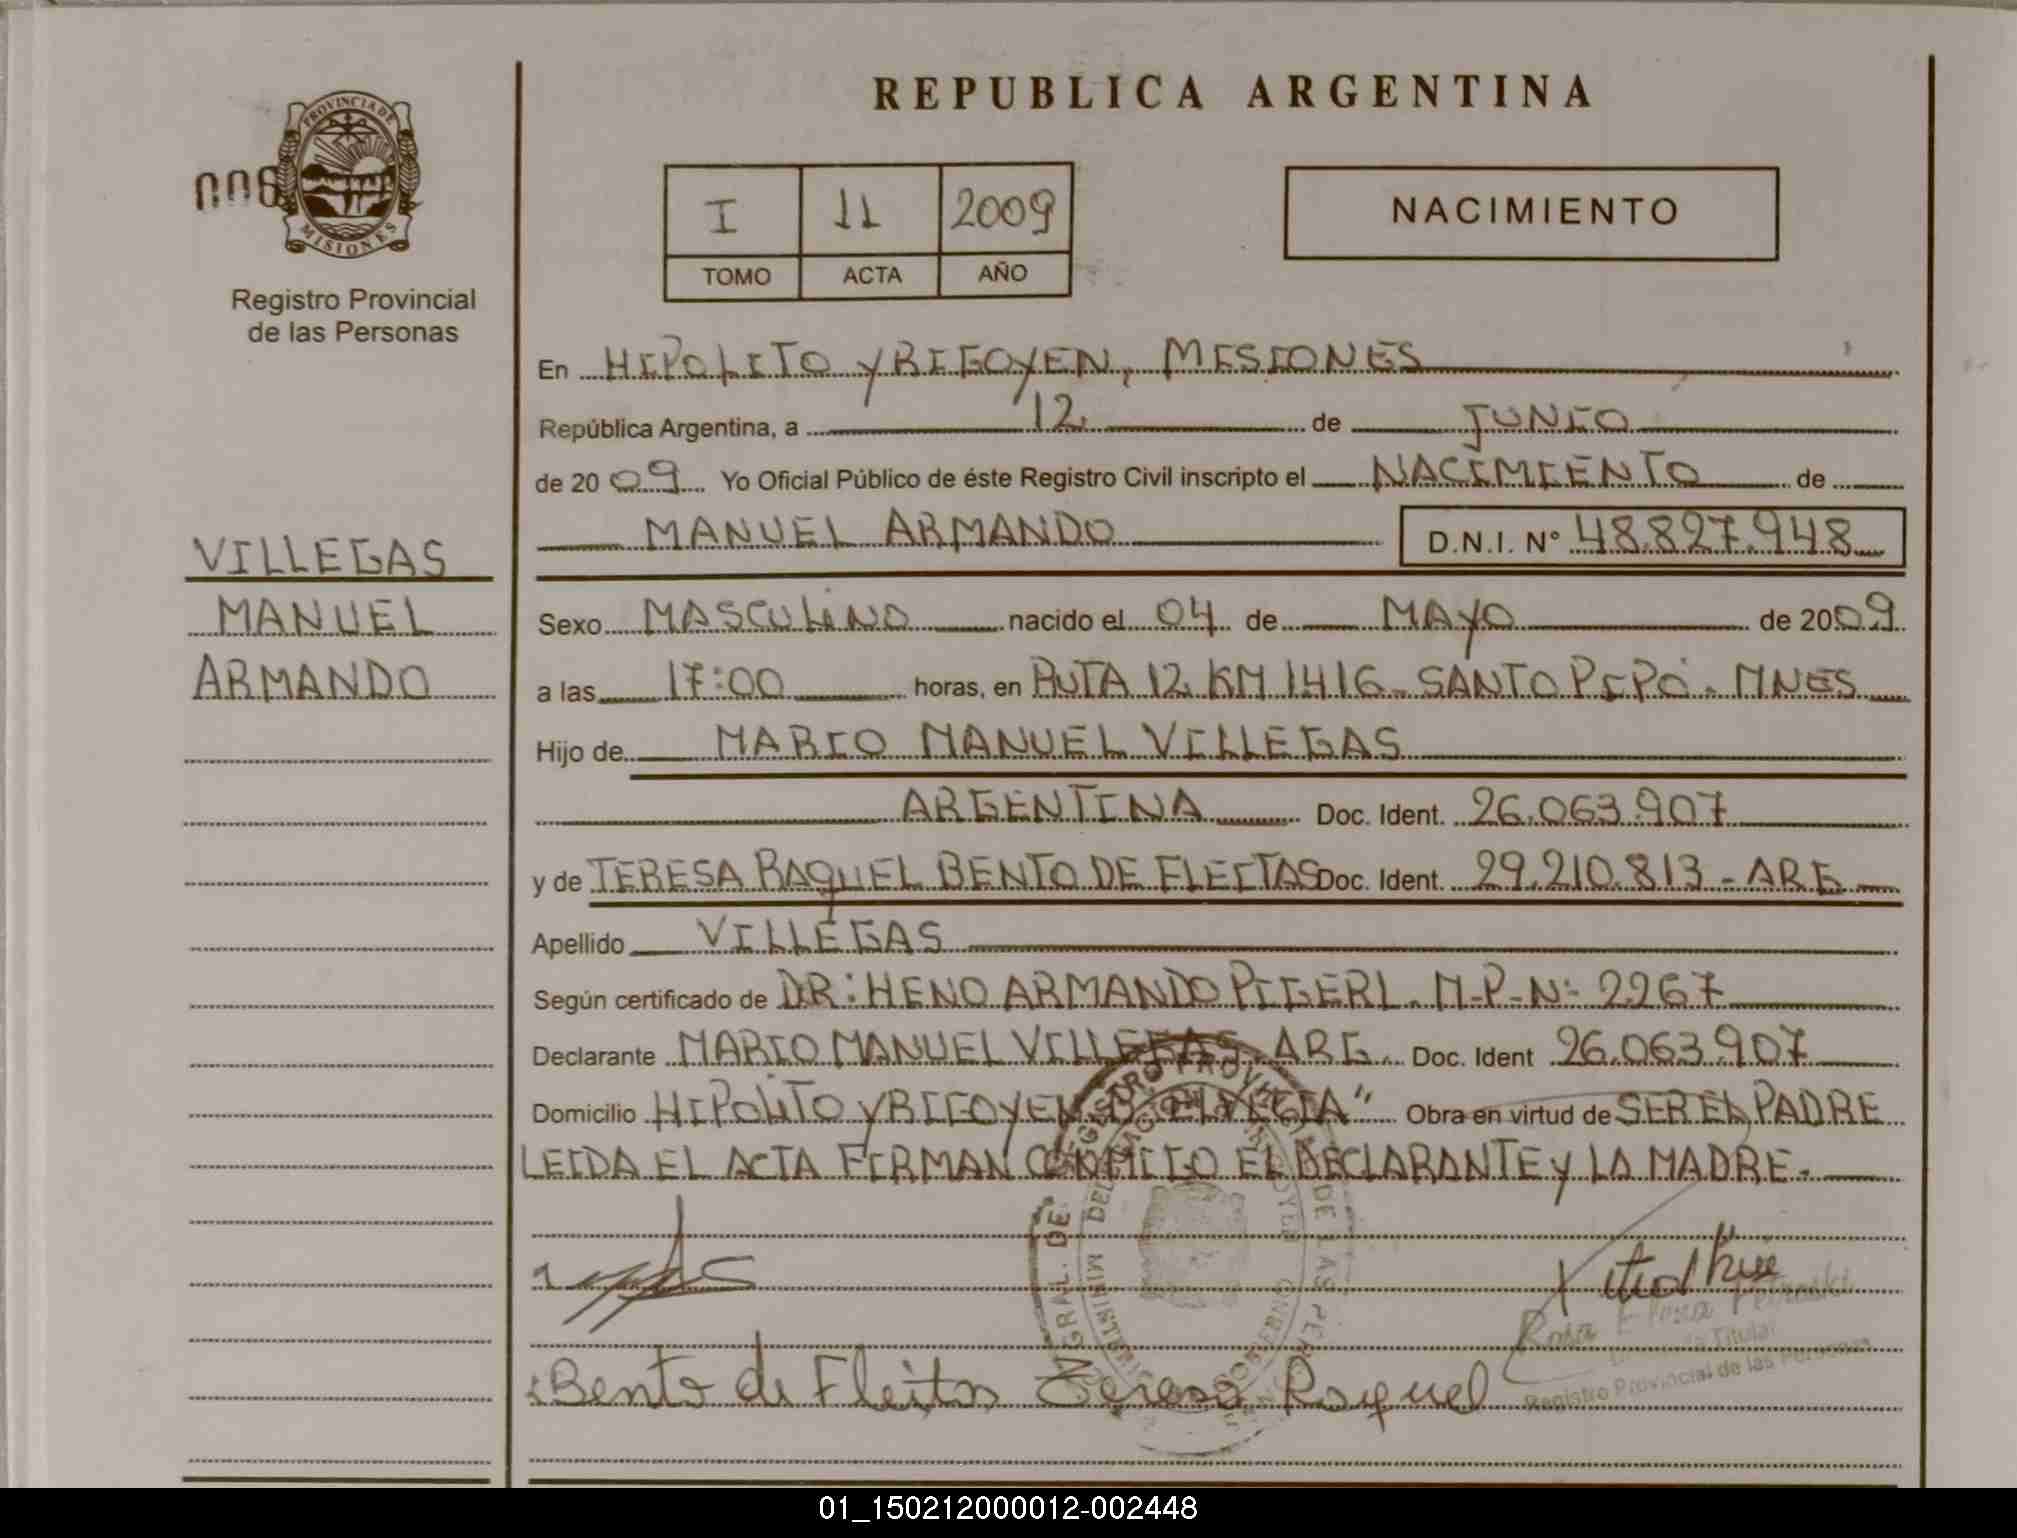 REPUBLICA ARGENTINA
PROVINCIA DE MISIONES
006
Registro Provincial
de las Personas
I 11 2009
TOMO ACTA AÑO
NACIMIENTO
VILLEGAS
MANUEL
ARMANDO
En HIPOLITO YRIGOYEN, MISIONES
República Argentina, a 12 de JUNIO
de 2009 Yo Oficial Público de éste Registro Civil inscripto el NACIMIENTO de
MANUEL ARMANDO D.N.I. N° 48.827.948
Sexo MASCULINO nacido el 04 de MAYO de 2009
a las 17:00 horas, en RUTA 12 KM 1416 - SANTO PIPÓ - MNES
Hijo de MARIO MANUEL VILLEGAS
ARGENTINA Doc. Ident. 26.063.907
y de TERESA RAQUEL BENTO DE FLEITAS Doc. Ident. 29.210.813 - ARG
Apellido VILLEGAS
Según certificado de DR: HENO ARMANDO PIGERL. M-P-N: 2267
Declarante MARIO MANUEL VILLEGAS - ARG. Doc. Ident 26.063.907
Domicilio HIPOLITO YRIGOYEN Obra en virtud de SER EL PADRE
LEIDA EL ACTA FIRMAN CONMIGO EL DECLARANTE Y LA MADRE.
Bento de Fleitas Teresa Raquel
Rosa
Titular
Registro Provincial de las Personas
01_150212000012-002448